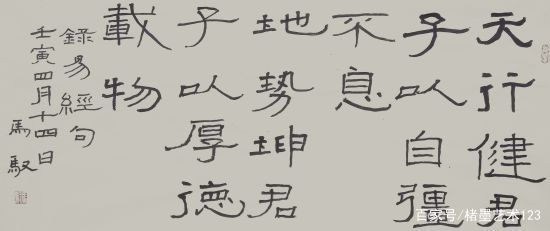 天行健君
子以自彊
不息
地勢坤君
子以厚德
載物
錄易經句
壬寅四月十四日
馬馭
百家号/楮墨艺术123